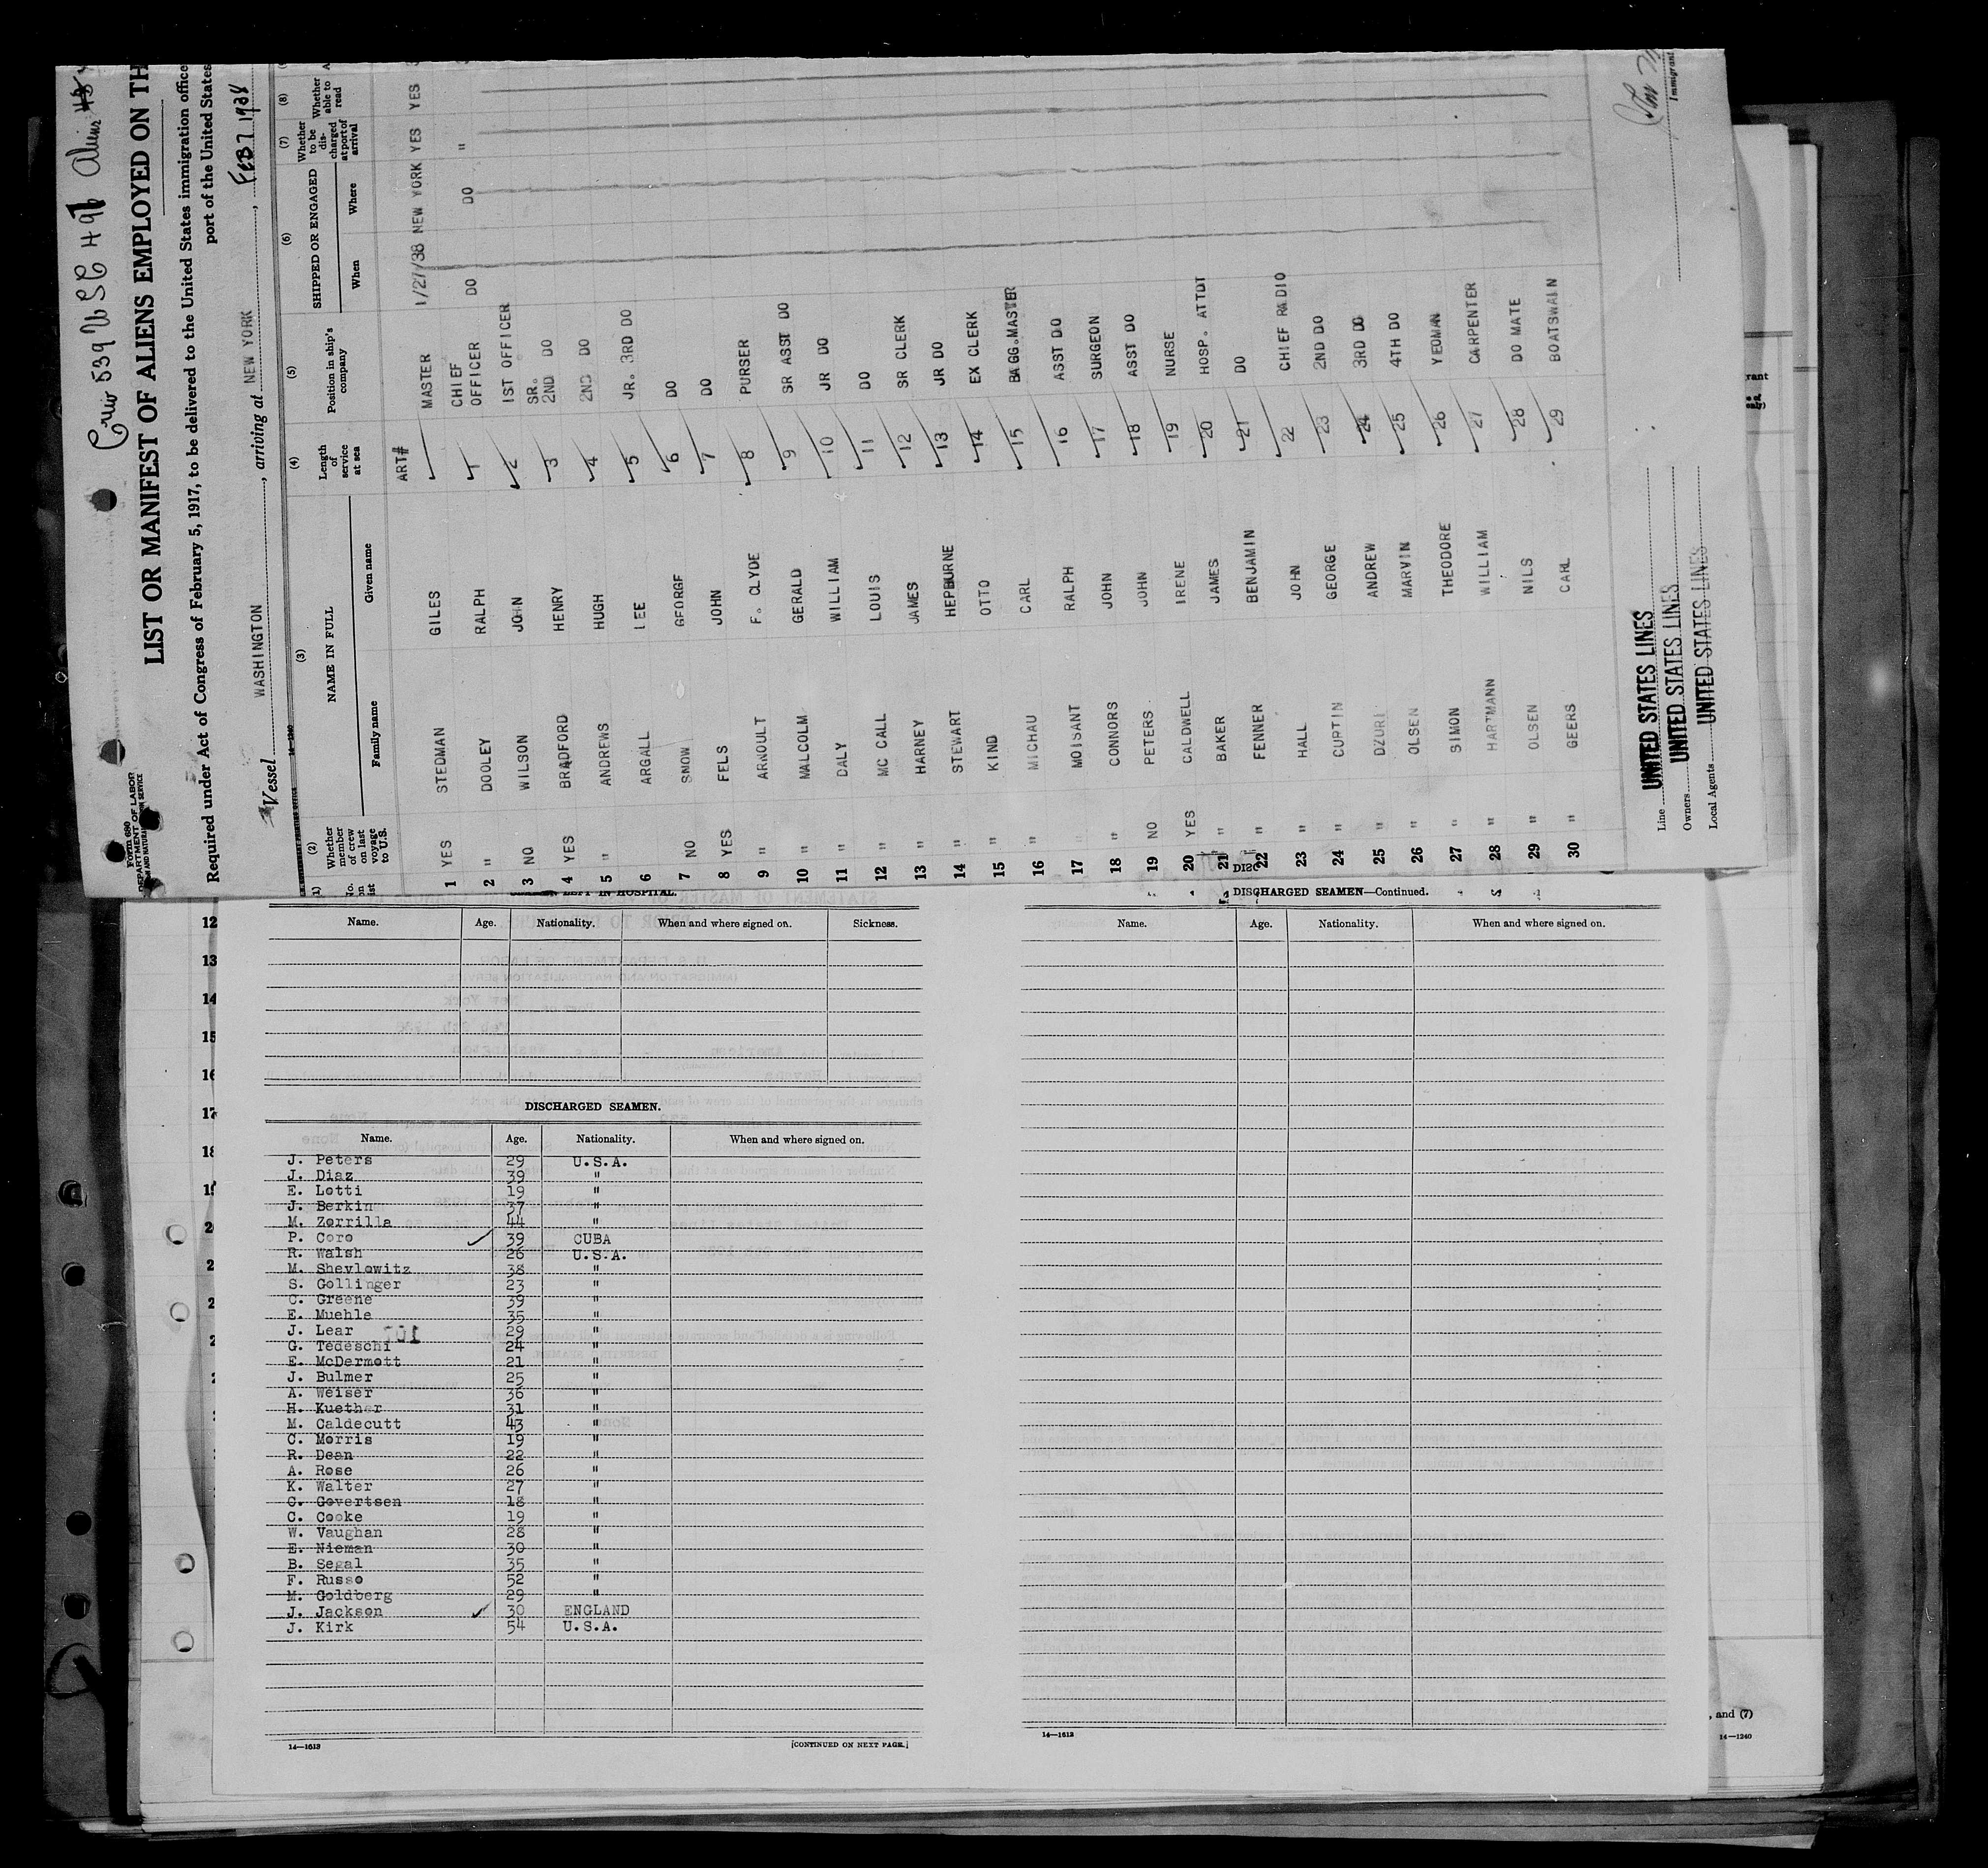 Crew 539 USC 496 Aliens 43
Form 680
DEPARTMENT OF LABOR
LIST OR MANIFEST OF ALIENS EMPLOYED ON TH
Required under Act of Congress of February 5, 1917, to be delivered to the United States immigration office
port of the United States
Vessel WASHINGTON, arriving at NEW YORK, FEB 7 1938
14-1240
(2) Whether member of crew on last voyage to U.S.
(3) NAME IN FULL
Family name Given name
(4) Length of service at sea
(5) Position in ship's company
(6) SHIPPED OR ENGAGED
When Where
(7) Whether to be discharged at port of arrival
(8) Whether able to read
ART#
1 YES STEDMAN GILES MASTER 1/27/38 NEW YORK YES YES
2 " DOOLEY RALPH 1 CHIEF OFFICER DO DO "
3 NO WILSON JOHN 2 1ST OFFICER
4 YES BRADFORD HENRY 3 SR. 2ND DO
5 " ANDREWS HUGH 4 2ND DO
6 ARGALL LEE 5 JR. 3RD DO
7 NO SNOW GEORGE 6 DO
8 YES FELS JOHN 7 DO
9 " ARNOULT F. CLYDE 8 PURSER
10 " MALCOLM GERALD 9 SR ASST DO
11 " DALY WILLIAM 10 JR DO
12 " MC CALL LOUIS 11 DO
13 " HARNEY JAMES 12 SR CLERK
14 " STEWART HEPBURNE 13 JR DO
15 " KIND OTTO 14 EX CLERK
16 " MICHAU CARL 15 BAGG.MASTER
17 " MOISANT RALPH 16 ASST DO
18 " CONNORS JOHN 17 SURGEON
19 NO PETERS JOHN 18 ASST DO
20 YES CALDWELL IRENE 19 NURSE
21 " BAKER JAMES 20 HOSP. ATTDT
22 " FENNER BENJAMIN 21 DO
23 " HALL JOHN 22 CHIEF RADIO
24 " CURTIN GEORGE 23 2ND DO
25 " DZURI ANDREW 24 3RD DO
26 " OLSEN MARVIN 25 4TH DO
27 " SIMON THEODORE 26 YEOMAN
28 " HARTMANN WILLIAM 27 CARPENTER
29 " OLSEN NILS 28 DO MATE
30 " GEERS CARL 29 BOATSWAIN
Line UNITED STATES LINES
Owners UNITED STATES LINES
Local Agents UNITED STATES LINES
Immigrant
LEFT IN HOSPITAL.
Name. Age. Nationality. When and where signed on. Sickness.
DISCHARGED SEAMEN.
Name. Age. Nationality. When and where signed on.
J. Peters 29 U.S.A.
J. Diaz 39 "
E. Lotti 19 "
J. Berkin 37 "
M. Zorrilla 44 "
P. Coro 39 CUBA
R. Walsh 26 U.S.A.
M. Shevlowitz 38 "
S. Gollinger 23 "
C. Greene 39 "
E. Muehle 35 "
J. Lear 29 "
G. Tedeschi 24 "
E. McDermott 21 "
J. Bulmer 25 "
A. Weiser 36 "
H. Kuether 31 "
M. Caldecutt 43 "
C. Morris 19 "
R. Dean 22 "
A. Rose 26 "
K. Walter 27 "
C. Govertsen 18 "
C. Cooke 19 "
W. Vaughan 28 "
E. Nieman 30 "
B. Segal 35 "
F. Russo 52 "
M. Goldberg 29 "
J. Jackson 30 ENGLAND
J. Kirk 54 U.S.A.
14—1613 [CONTINUED ON NEXT PAGE.]
DISCHARGED SEAMEN—Continued.
Name. Age. Nationality. When and where signed on.
14—1613
, and (7)
14—1240
12
13
14
15
16
17
18